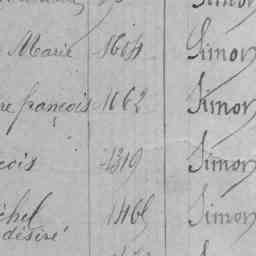 Marie 1604 Simon
re françois 1662 Simon
çois 1319 Simon
chel 1465 Simon
désiré